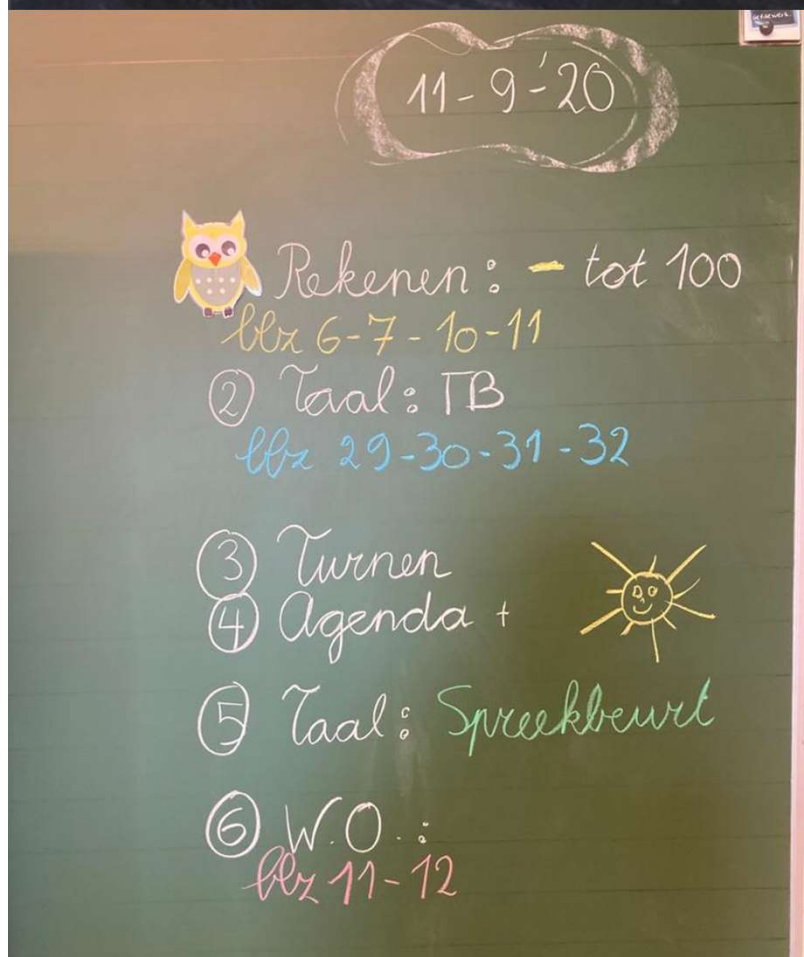 11-9-'20
Rekenen: - tot 100
blz 6-7-10-11
② Taal: TB
blz 29-30-31-32
③ Turnen
④ Agenda +
⑤ Taal: Spreekbeurt
⑥ W.O.:
blz 11-12